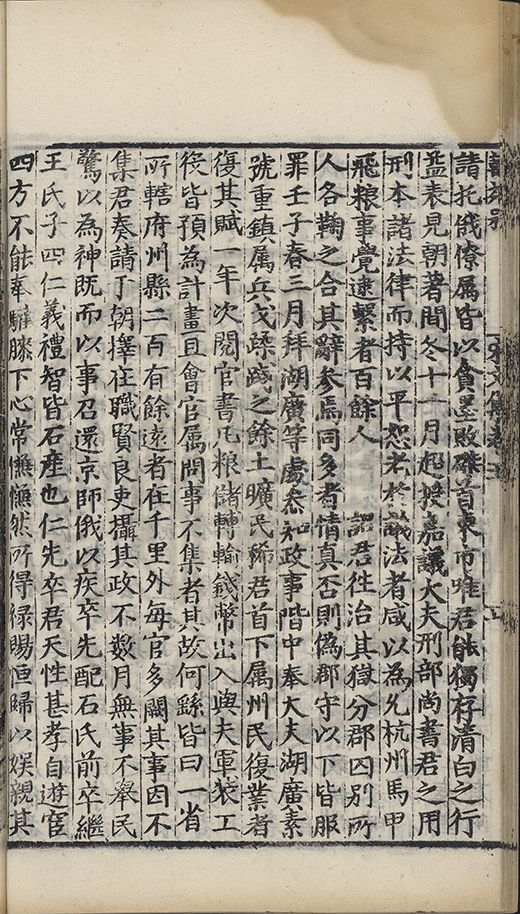 請托俄僚属皆以貪墨敗磔首東市唯君能獨存清白之行
益表見朝著間冬十一月起授嘉議大夫刑部尚書君之用
刑本諸法律而持以平恕老於議法者咸以為允杭州馬甲
飛粮事覺逮繫者百餘人 詔君往治其獄分郡囚别所
人各鞫之合其辭参焉同多者情真否則偽郡守以下皆服
罪壬子春三月拜湖廣等處叅知政事階中奉大夫湖廣素
號重鎮属兵戈蹂踐之餘土曠民稀君首下属州民復業者
復其賦一年次閱官書凡粮儲轉輸錢幣出入與夫軍装工
役皆預為計畫且會官属問事不集者其故何繇皆曰一省
所轄府州縣二百有餘遠者在千里外每官多闕其事因不
集君奏請于朝擇在職賢良吏攝其政不數月無事不舉民
驚以為神既而以事召還京師俄以疾卒先配石氏前卒繼
王氏子四仁義禮智皆石產也仁先卒君天性甚孝自遊宦
四方不能奉驩膝下心常慊慊然所得禄賜恒歸以娛親其